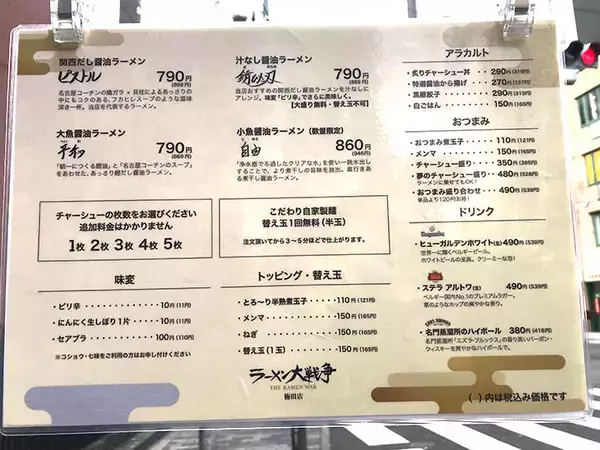 関西だし醤油ラーメン
ピストル
790円
(869円)
名古屋コーチンの鶏ガラ × 貝柱によるあっさりの
中にもコクのある、フカヒレスープのような滋味
深き一杯。当店を代表するラーメン。
汁なし醤油ラーメン
諸刃ノ刃
790円
(869円)
当店おすすめの関西だし醤油ラーメンを汁なしに
アレンジ。味変「ピリ辛」でさらに美味しく。
【大盛り無料・替え玉不可】
大魚醤油ラーメン
平和
790円
(869円)
「朝一につくる鰹油」と「名古屋コーチンのスープ」
をあわせた、あっさり鰹だし醤油ラーメン。
小魚醤油ラーメン (数量限定)
自由
860円
(946円)
「浄水器でろ過したクリアな水」を使い一晩水出し
することで、より煮干しの旨味を抽出。奥行きある
煮干し醤油ラーメン。
チャーシューの枚数をお選びください
追加料金はかかりません
1枚 2枚 3枚 4枚 5枚
こだわり自家製麺
替え玉1回無料(半玉)
注文頂いてから3~5分ほどで仕上がります。
味変
・ピリ辛・・・・・・・・・10円(11円)
・にんにく生しぼり1片・・・・10円(11円)
・セアブラ・・・・・・・・100円(110円)
※コショウ・七味をご利用の方はお申し付けください
トッピング・替え玉
・とろ~り半熟煮玉子・・・・110円(121円)
・メンマ・・・・・・・・・150円(165円)
・ねぎ・・・・・・・・・・150円(165円)
・替え玉(1玉)・・・・・・150円(165円)
ラーメン大戦争
THE RAMEN WAR
梅田店
アラカルト
・炙りチャーシュー丼・・・290円(319円)
・特選醤油から揚げ・・・・270円(297円)
・黒豚餃子・・・・・・・290円(319円)
・白ごはん・・・・・・・150円(165円)
おつまみ
・おつまみ煮玉子・・・・・110円(121円)
・メンマ・・・・・・・・150円(165円)
・チャーシュー盛り・・・・350円(385円)
・夢のチャーシュー盛り・・・480円(528円)
ラーメンに乗せてもOK!
・おつまみ盛り合わせ・・・490円(539円)
単品より120円お得!
ドリンク
・ヒューガルデンホワイト(生)490円(539円)
世界一に輝くベルギービール。
ホワイトビールの至高。クリーミーな泡!
・ステラ アルトワ(生) 490円(539円)
ベルギー国内No.1のプレミアムラガー。
草のようなホップの爽やかな香り。
・名門蒸溜所のハイボール 380円(418円)
名門蒸溜所「エズラ・ブルックス」の香り高いバーボン・
ウィスキーを爽やかなハイボールで。
( )内は税込み価格です